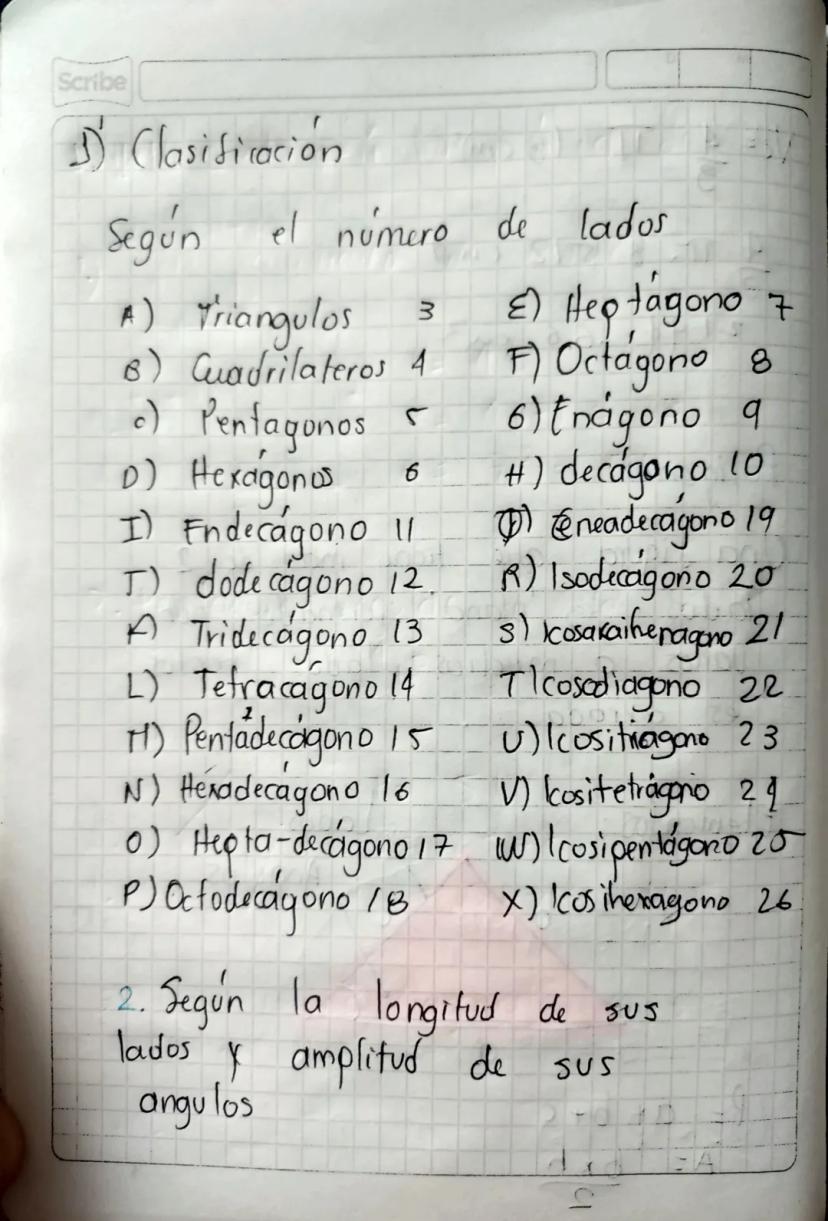 Scribe
1) Clasificación
Según el número de lados
A) Triangulos 3
B) Cuadrilateros 4
C) Pentagonos 5
D) Hexágonos 6
E) Heptágono 7
F) Octágono 8
G) Enágono 9
H) decágono 10
I) Endecágono 11
J) dodecágono 12
K) Tridecágono 13
L) Tetracágono 14
M) Pentadecágono 15
N) Hexadecágono 16
O) Hepta-decágono 17
P) Octodecágono 18
eneadecágono 19
R) Isodecágono 20
S) 21
T) 22
U) 23
V) Icositetrágono 24
W) Icosipentágono 25
X) Icosihexagono 26
2. Según la longitud de sus
lados y amplitud de sus
angulos